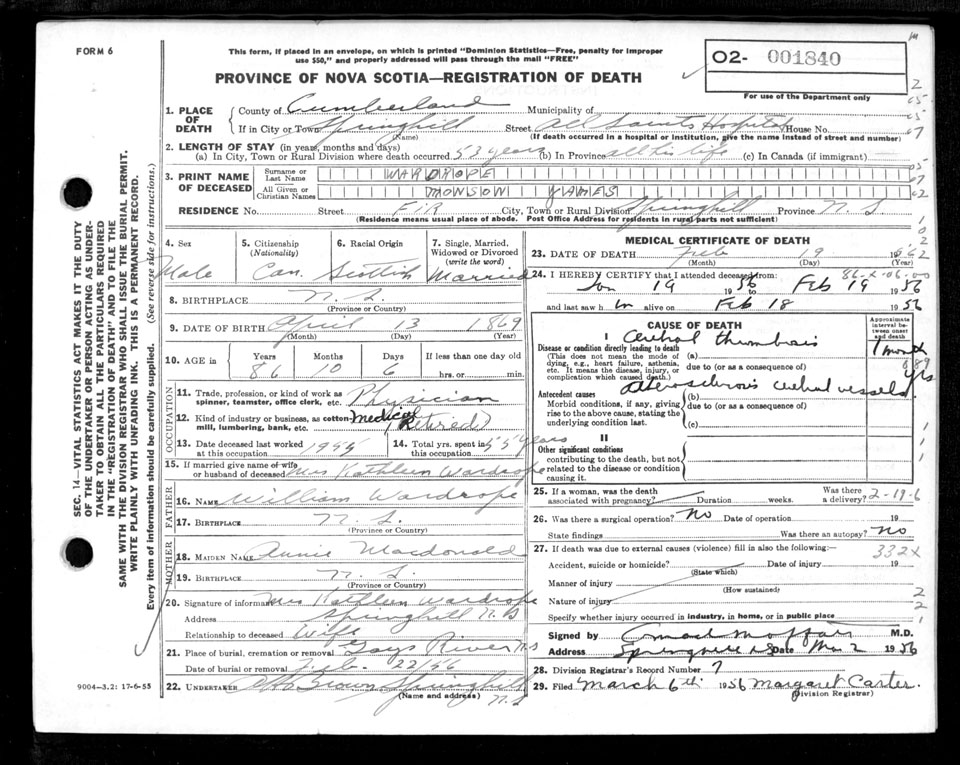 FORM 6
This form, if placed in an envelope, on which is printed "Dominion Statistics—Free, penalty for improper
use $50," and properly addressed will pass through the mail "FREE"
PROVINCE OF NOVA SCOTIA—REGISTRATION OF DEATH
O2- 001840
For use of the Department only
1. PLACE OF DEATH
County of Cumberland Municipality of
If in City or Town Springhill Street All Saints Hospital House No.
(Name) (If death occurred in a hospital or institution, give the name instead of street and number)
2. LENGTH OF STAY (in years, months and days)
(a) In City, Town or Rural Division where death occurred 53 years (b) In Province all his life (c) In Canada (if immigrant)
3. PRINT NAME OF DECEASED
Surname or Last Name WARDROPE
All Given or Christian Names MONSON JAMES
RESIDENCE No. Street Fir City, Town or Rural Division Springhill Province N.S
(Residence means usual place of abode. Post Office Address for residents in rural parts not sufficient)
4. Sex Male
5. Citizenship (Nationality) Can.
6. Racial Origin Scottish
7. Single, Married, Widowed or Divorced (write the word) Married
8. BIRTHPLACE N.S.
(Province or Country)
9. DATE OF BIRTH April 13 1869
(Month) (Day) (Year)
10. AGE in Years Months Days If less than one day old
86 10 6 hrs. or min.
OCCUPATION
11. Trade, profession, or kind of work as spinner, teamster, office clerk, etc. Physician
12. Kind of industry or business, as cotton mill, lumbering, bank, etc. Medical (Retired)
13. Date deceased last worked at this occupation 1955
14. Total yrs. spent in this occupation 55 years
15. If married give name of wife or husband of deceased Mrs Kathleen Wardrope
FATHER
16. NAME William Wardrope
17. BIRTHPLACE N.S.
(Province or Country)
MOTHER
18. MAIDEN NAME Annie Macdonald
19. BIRTHPLACE N.S.
(Province or Country)
20. Signature of informant Mrs Kathleen Wardrope
Address Springhill N.S
Relationship to deceased Wife
21. Place of burial, cremation or removal Gays River N.S
Date of burial or removal Feb. 22/56
22. UNDERTAKER Brown Springhill
(Name and address) N.S
MEDICAL CERTIFICATE OF DEATH
23. DATE OF DEATH Feb 19
(Month) (Day) (Year)
24. I HEREBY CERTIFY that I attended deceased from:
Jan 19 1956 to Feb 19 1956
and last saw him alive on Feb 18 1956
CAUSE OF DEATH
Approximate interval between onset and death
I
Disease or condition directly leading to death
(This does not mean the mode of dying, e.g., heart failure, asthenia, etc. It means the disease, injury, or complication which caused death.)
(a) Cerebral thrombosis 1 month
due to (or as a consequence of)
Antecedent causes
Morbid conditions, if any, giving rise to the above cause, stating the underlying condition last.
(b) Atherosclerosis cerebral vessels yrs
due to (or as a consequence of)
(c)
II
Other significant conditions
contributing to the death, but not related to the disease or condition causing it.
25. If a woman, was the death associated with pregnancy? Duration weeks. Was there a delivery? 2-19-6
26. Was there a surgical operation? No Date of operation 19
State findings Was there an autopsy? No
27. If death was due to external causes (violence) fill in also the following:— 332X
Accident, suicide or homicide? Date of injury 19
(State which)
Manner of injury
(How sustained)
Nature of injury
Specify whether injury occurred in industry, in home, or in public place
Signed by M.D.
Address Springhill NS Date Mar 2 1956
28. Division Registrar's Record Number 7
29. Filed March 6th 1956 Margaret Carter
(Division Registrar)
SEC. 14—VITAL STATISTICS ACT MAKES IT THE DUTY
OF THE UNDERTAKER OR PERSON ACTING AS UNDER-
TAKER TO OBTAIN ALL THE PARTICULARS REQUIRED
IN THE "REGISTRATION OF DEATH" AND TO FILE THE
SAME WITH THE DIVISION REGISTRAR WHO SHALL ISSUE THE BURIAL PERMIT.
WRITE PLAINLY WITH UNFADING INK. THIS IS A PERMANENT RECORD.
Every item of information should be carefully supplied. (See reverse side for instructions.)
9004—3.2: 17-6-55